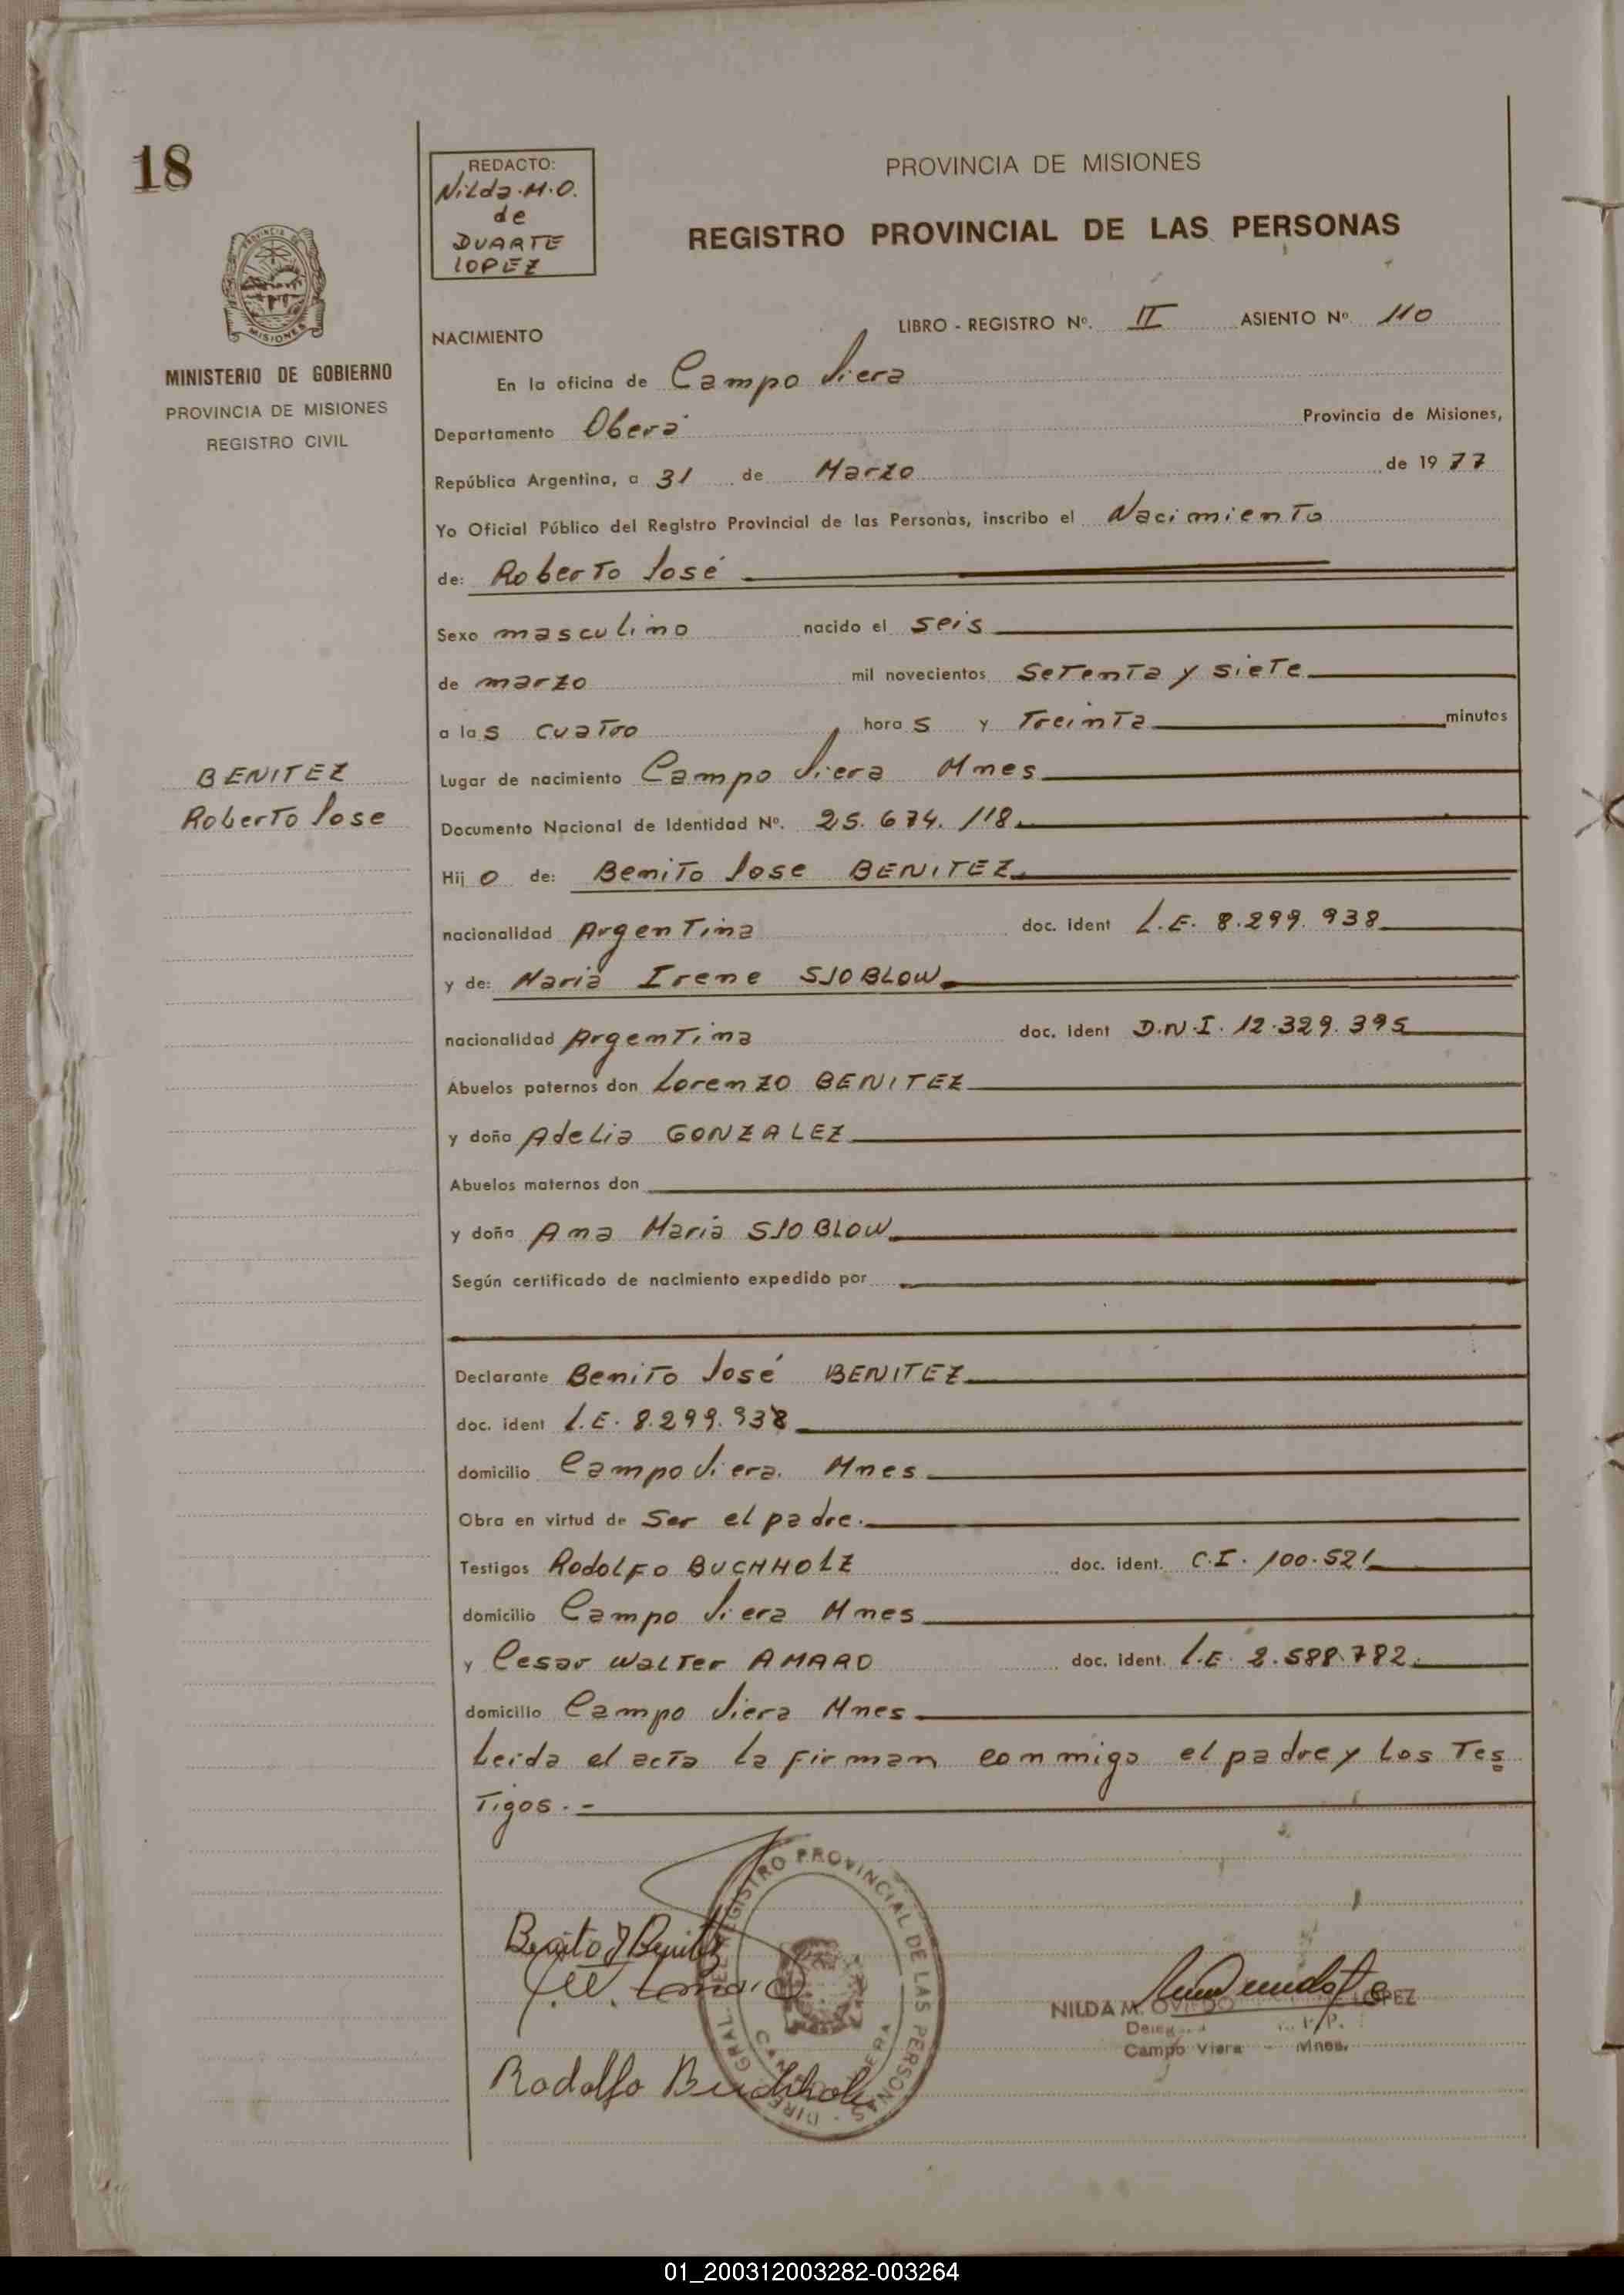 18
PROVINCIA DE MISIONES
MINISTERIO DE GOBIERNO
PROVINCIA DE MISIONES
REGISTRO CIVIL
BENITEZ
Roberto Jose
REDACTO:
Nilda.M.O.
de
DUARTE
LOPEZ
PROVINCIA DE MISIONES
REGISTRO PROVINCIAL DE LAS PERSONAS
LIBRO - REGISTRO Nº. II ASIENTO Nº 110
NACIMIENTO
En la oficina de Campo Viera
Departamento Oberá Provincia de Misiones,
República Argentina, a 31 de Marzo de 1977
Yo Oficial Público del Registro Provincial de las Personas, inscribo el Nacimiento
de: Roberto José
Sexo masculino nacido el seis
de marzo mil novecientos Setenta y siete
a las cuatro horas y Treinta minutos
Lugar de nacimiento Campo Viera Mnes
Documento Nacional de Identidad Nº. 25.674.118
Hijo de: Benito Jose BENITEZ
nacionalidad Argentina doc. ident L.E. 8.299.938
y de: Maria Irene SJOBLOW
nacionalidad Argentina doc. ident D.N.I. 12.329.395
Abuelos paternos don Lorenzo BENITEZ
y doña Adelia GONZALEZ
Abuelos maternos don
y doña Ana Maria SJOBLOW
Según certificado de nacimiento expedido por
Declarante Benito José BENITEZ
doc. ident L.E. 8.299.938
domicilio Campo Viera. Mnes
Obra en virtud de Ser el padre.
Testigos Rodolfo BUCHHOLZ doc. ident. C.I. 100.521
domicilio Campo Viera Mnes
y Cesar Walter AMARO doc. ident. L.E. 2.588.782.
domicilio Campo Viera Mnes
Leida el acta la firman conmigo el padre y los Tes
Tigos.-
Benito J Benitez
Rodolfo Buchholz
DIREC. GRAL. DEL REGISTRO PROVINCIAL DE LAS PERSONAS
NILDA M. OVIEDO LOPEZ
Campo Viera - Mnes.
01_200312003282-003264